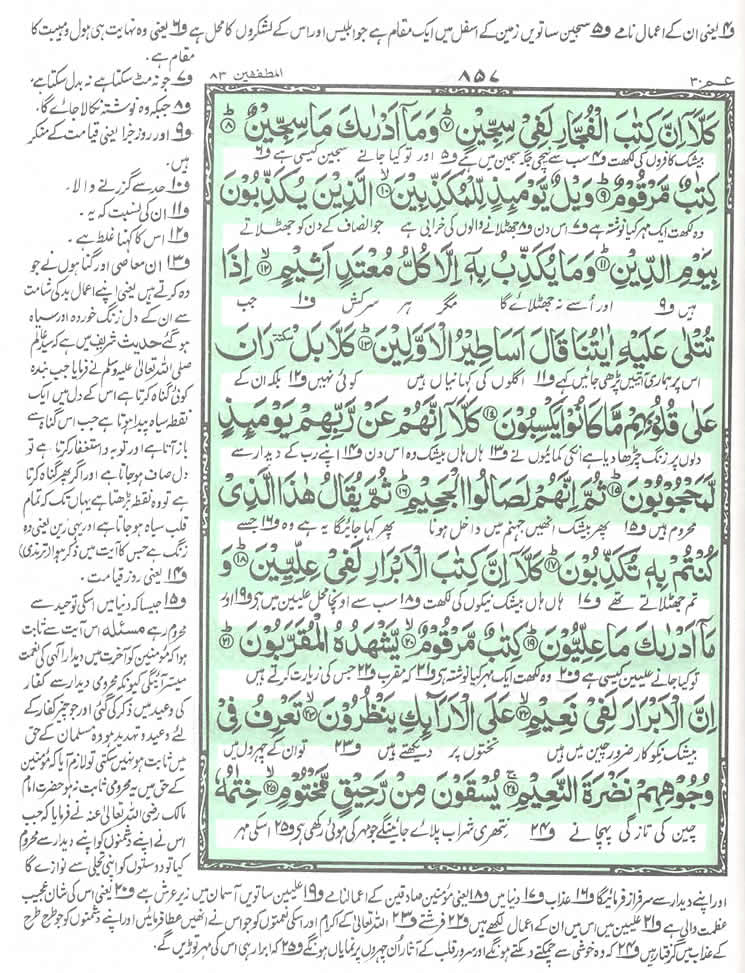 و۴ یعنی ان کے اعمال نامے و۵ سجین ساتویں زمین کے اسفل میں ایک مقام ہے جو ابلیس اور اس کے لشکروں کا محل ہے و۶ یعنی وہ نہایت ہی ہول و ہیبت کا
مقام ہے۔
عمّ ۳۰
۸۵۷
المطففین ۸۳
و۷ جو نہ مٹ سکتا ہے نہ بدل سکتا ہے۔
و۸ جبکہ وہ نوشتہ نکالا جائے گا۔
و۹ اور روز جزا یعنی قیامت کے منکر
ہیں۔
و۱۰ حد سے گزرنے والا۔
و۱۱ ان کی نسبت کہ یہ۔
و۱۲ اس کا کہنا غلط ہے۔
و۱۳ ان معاصی اور گناہوں نے جو
وہ کرتے ہیں یعنی اپنے اعمال بد کی شامت
سے ان کے دل زنگ خوردہ اور سیاہ
ہو گئے حدیث شریف میں ہے کہ سید عالم
صلی اللہ تعالیٰ علیہ وسلم نے فرمایا جب بندہ
کوئی گناہ کرتا ہے اس کے دل میں ایک
نقطہ سیاہ پیدا ہوتا ہے جب اس گناہ سے
باز آتا ہے اور توبہ و استغفار کرتا ہے تو
دل صاف ہو جاتا ہے اور اگر پھر گناہ کرتا
ہے تو وہ نقطہ بڑھتا ہے یہاں تک کہ تمام
قلب سیاہ ہو جاتا ہے اور یہی رین یعنی وہ
زنگ ہے جس کا آیت میں ذکر ہوا (ترمذی)
و۱۴ یعنی روز قیامت۔
و۱۵ جیسا کہ دنیا میں اسکی توحید سے
محروم رہے مسئلہ اس آیت سے ثابت
ہوا کہ مؤمنین کو آخرت میں دیدار الٰہی کی نعمت
میسر آئیگی کیونکہ محرومی دیدار سے کفار
کی وعید میں ذکر کی گئی اور جو چیز کفار کے
لئے وعید و تہدید ہو وہ مسلمان کے حق
میں ثابت ہو نہیں سکتی تو لازم آیا کہ مؤمنین
کے حق میں یہ محرومی ثابت نہ ہو حضرت امام
مالک رضی اللہ تعالیٰ عنہ نے فرمایا کہ جب
اس نے اپنے دشمنوں کو اپنے دیدار سے محروم
کیا تو دوستوں کو اپنی تجلی سے نوازے گا
كَلَّاۤ اِنَّ كِتٰبَ الْفُجَّارِ لَفِیْ سِجِّیْنٍ ﴿۷﴾ وَمَاۤ اَدْرٰىكَ مَا سِجِّیْنٌ ﴿۸﴾
بیشک کافروں کی لکھت و۴ سب سے نیچی جگہ سجین میں ہے و۵ اور تو کیا جانے سجین کیسی ہے و۶
كِتٰبٌ مَّرْقُوْمٌ ﴿۹﴾ وَیْلٌ یَّوْمَىِٕذٍ لِّلْمُكَذِّبِیْنَ ﴿۱۰﴾ الَّذِیْنَ یُكَذِّبُوْنَ
وہ لکھت ایک مہر کیا نوشتہ ہے و۷ اس دن و۸ جھٹلانے والوں کی خرابی ہے جو انصاف کے دن کو جھٹلاتے
بِیَوْمِ الدِّیْنِ ﴿۱۱﴾ وَمَا یُكَذِّبُ بِهٖۤ اِلَّا كُلُّ مُعْتَدٍ اَثِیْمٍ ﴿۱۲﴾ اِذَا
ہیں و۹ اور اُسے نہ جھٹلائے گا مگر ہر سرکش و۱۰ جب
تُتْلٰى عَلَیْهِ اٰیٰتُنَا قَالَ اَسَاطِیْرُ الْاَوَّلِیْنَ ﴿۱۳﴾ كَلَّا بَلْ سکتہ رَانَ
اس پر ہماری آیتیں پڑھی جائیں کہے و۱۱ اگلوں کی کہانیاں ہیں کوئی نہیں و۱۲ بلکہ ان کے
عَلٰى قُلُوْبِهِمْ مَّا كَانُوْا یَكْسِبُوْنَ ﴿۱۴﴾ كَلَّاۤ اِنَّهُمْ عَنْ رَّبِّهِمْ یَوْمَىِٕذٍ
دلوں پر زنگ چڑھا دیا ہے انکی کمائیوں نے و۱۳ ہاں ہاں بیشک وہ اس دن و۱۴ اپنے رب کے دیدار سے
لَّمَحْجُوْبُوْنَ ﴿۱۵﴾ ثُمَّ اِنَّهُمْ لَصَالُوا الْجَحِیْمِ ﴿۱۶﴾ ثُمَّ یُقَالُ هٰذَا الَّذِیْ
محروم ہیں و۱۵ پھر بیشک انھیں جہنم میں داخل ہونا پھر کہا جائیگا یہ ہے وہ و۱۶ جسے
كُنْتُمْ بِهٖ تُكَذِّبُوْنَ ﴿۱۷﴾ كَلَّاۤ اِنَّ كِتٰبَ الْاَبْرَارِ لَفِیْ عِلِّیِّیْنَ ﴿۱۸﴾ وَ
تم جھٹلاتے تھے و۱۷ ہاں ہاں بیشک نیکوں کی لکھت و۱۸ سب سے اونچا محل علیین میں ہی و۱۹ اور
مَاۤ اَدْرٰىكَ مَا عِلِّیُّوْنَ ﴿۱۹﴾ كِتٰبٌ مَّرْقُوْمٌ ﴿۲۰﴾ یَّشْهَدُهُ الْمُقَرَّبُوْنَ ﴿۲۱﴾
تو کیا جانے علیین کیسی ہے و۲۰ وہ لکھت ایک مہر کیا نوشتہ ہی و۲۱ کہ مقرب و۲۲ جس کی زیارت کرتے ہیں
اِنَّ الْاَبْرَارَ لَفِیْ نَعِیْمٍ ﴿۲۲﴾ عَلَى الْاَرَآىِٕكِ یَنْظُرُوْنَ ﴿۲۳﴾ تَعْرِفُ فِیْ
بیشک نکوکار ضرور چین میں ہیں تختوں پر دیکھتے ہیں و۲۳ تو ان کے چہروں میں
وُجُوْهِهِمْ نَضْرَةَ النَّعِیْمِ ﴿۲۴﴾ یُسْقَوْنَ مِنْ رَّحِیْقٍ مَّخْتُوْمٍ ﴿۲۵﴾ خِتٰمُهٗ
چین کی تازگی پہچانے و۲۴ نتھری شراب پلائے جائینگے جو مہر کی ہوئی رکھی ہی و۲۵ اسکی مہر
اور اپنے دیدار سے سرفراز فرمائیگا و۱۶ عذاب و۱۷ دنیا میں و۱۸ یعنی مؤمنین صادقین کے اعمالنامے و۱۹ علیین ساتویں آسمان میں زیر عرش ہے و۲۰ یعنی اس کی شان عجیب
عظمت والی ہے و۲۱ علیین میں اس میں ان کے اعمال لکھے ہیں و۲۲ فرشتے و۲۳ اللہ تعالیٰ کے اکرام اور اسکی نعمتوں کو جو اس نے انھیں عطا فرمائیں اور اپنے دشمنوں کو جو طرح طرح
کے عذاب میں گرفتار ہیں و۲۴ کہ وہ خوشی سے چمکتے دمکتے ہونگے اور سرور قلب کے آثار اُن چہروں پر نمایاں ہونگے و۲۵ کہ ابرار ہی اس کی مہر توڑیں گے۔